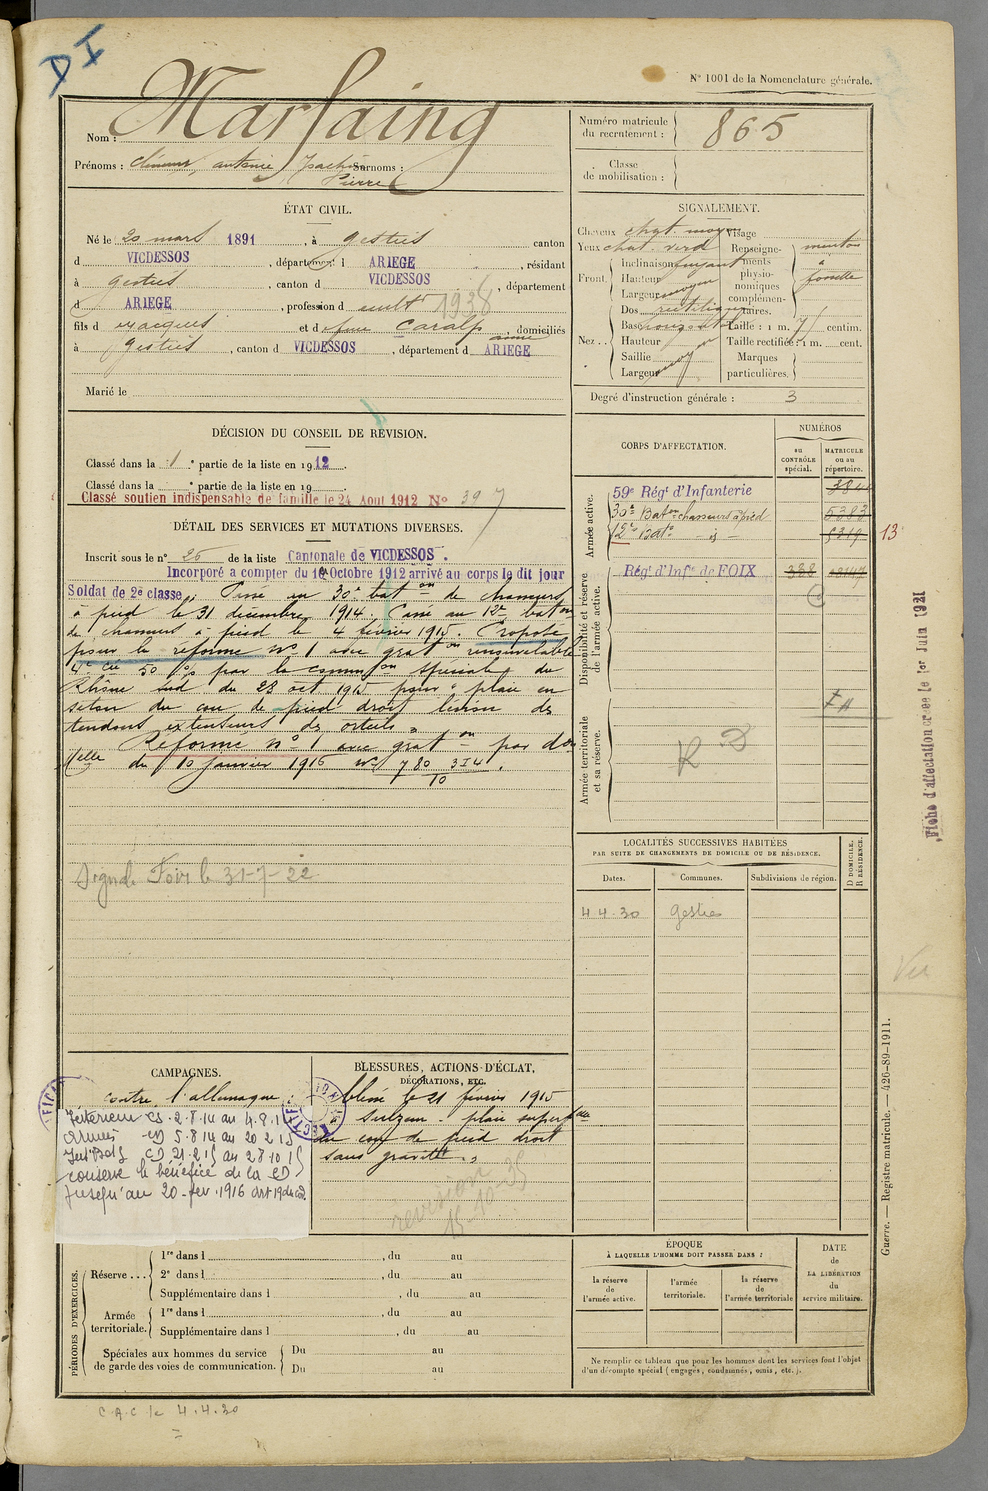 DI
N° 1001 de la Nomenclature générale.
Nom : Marfaing
Prénoms : antoine Surnoms :
Pierre
Numéro matricule du recrutement : 865
Classe de mobilisation :
ÉTAT CIVIL.
Né le 20 mars 1891, à gestiés canton
d VICDESSOS, département d ARIEGE, résidant
à gestiés, canton d VICDESSOS, département
d ARIEGE, profession d cult 1938
fils d jacques et d Caralp anne, domiciliés
à Gestiés, canton d VICDESSOS, département d ARIEGE
Marié le
SIGNALEMENT.
Cheveux chat. moyen
Yeux chat. verd
Front. Inclinaison fuyant
Hauteur
Largeur moyen
Nez. Dos rectiligne
Base
Hauteur
Saillie
Largeur moyen
Visage
Renseignements physionomiques complémentaires. menton à fossette
Taille : 1 m. 71 centim.
Taille rectifiée : 1 m. cent.
Marques particulières.
Degré d'instruction générale : 3
DÉCISION DU CONSEIL DE RÉVISION.
Classé dans la 1e partie de la liste en 1912.
Classé dans la e partie de la liste en 19
Classé soutien indispensable de famille le 24 Aout 1912 N° 397
DÉTAIL DES SERVICES ET MUTATIONS DIVERSES.
Inscrit sous le n° 26 de la liste Cantonale de VICDESSOS.
Incorporé a compter du 10 Octobre 1912 arrivé au corps le dit jour
Soldat de 2e classe. Passé au 30e bat on de chasseurs
à pied le 31 décembre 1914. Passé au 12e bat on
de chasseurs à pied le 4 février 1915. Proposé
pour la réforme n° 1 avec grat on renouvelable
4e cie 50 % par la comm on spéciale du
Rhône sud du 28 oct 1915 pour "plaie en
séton du cou de pied droit lésion des
tendons extenseurs des orteils"
Réformé n° 1 avec grat on par don
Melle du 10 janvier 1916 n° 780 314/10.
Foix le 31-7-22
CORPS D'AFFECTATION.
NUMÉROS
au CONTRÔLE spécial.
MATRICULE ou au répertoire.
Armée active.
59e Régt d'Infanterie
30e Bat on chasseurs à pied 5383
12e Bat on - id - 13
Disponibilité et réserve de l'armée active.
Régt d'Infie de FOIX 388
Armée territoriale et sa réserve.
R D
Fiche d'affectation créée le 1er Juin 1921
LOCALITÉS SUCCESSIVES HABITÉES
PAR SUITE DE CHANGEMENTS DE DOMICILE OU DE RÉSIDENCE.
Dates. Communes. Subdivisions de région. D DOMICILE. R RÉSIDENCE.
4 4. 30 Gestiés
Vu
CAMPAGNES.
Contre l'allemagne
Intérieur CS. 2.8.14 au 4.8.14
Armées CD 5.8.14 au 20 2 15
CD 21.2.15 au 28 10 15
conserve le bénéfice de la CD
jusqu'au 20 fev. 1916
BLESSURES, ACTIONS D'ÉCLAT,
DÉCORATIONS, ETC.
blessé le 21 février 1915
Sulzern. plaie superf elle
du cou de pied droit
sans gravité.
revision
15-10-35
Guerre. — Registre matricule. — 426-89-1911.
PÉRIODES D'EXERCICES.
Réserve...
1re dans l , du au
2e dans l , du au
Supplémentaire dans l , du au
Armée territoriale.
1re dans l , du au
Supplémentaire dans l , du au
Spéciales aux hommes du service de garde des voies de communication.
Du au
Du au
ÉPOQUE
À LAQUELLE L'HOMME DOIT PASSER DANS :
la réserve de l'armée active.
l'armée territoriale.
la réserve de l'armée territoriale
DATE de LA LIBÉRATION du service militaire.
Ne remplir ce tableau que pour les hommes dont les services font l'objet
d'un décompte spécial (engagés, condamnés, omis, etc.).
C.A.C le 4.4.30